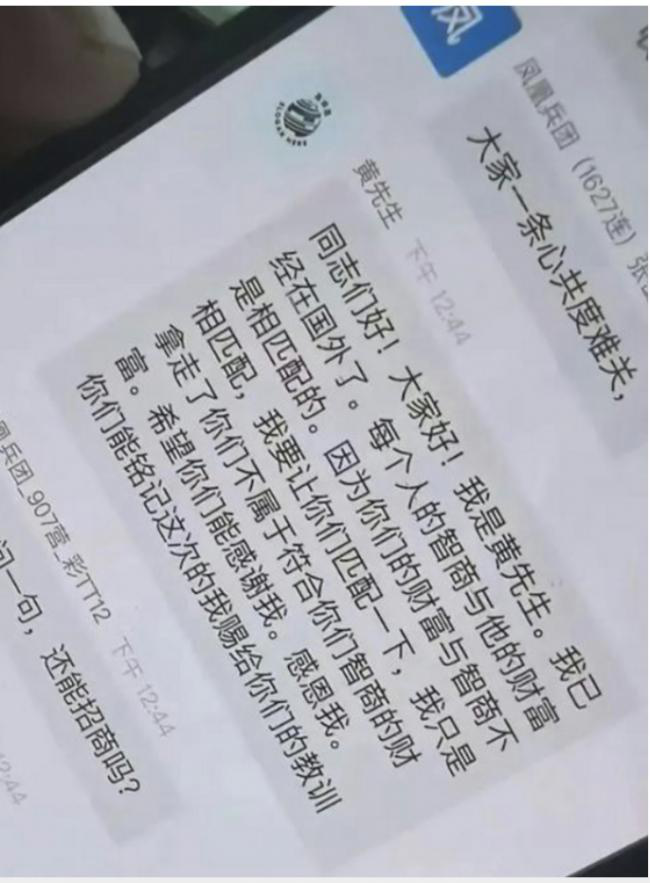 凤
凤凰兵团（1627连）张
大家一条心共度难关，
黄先生 下午 12:44
同志们好！大家好！我是黄先生。我已
经在国外了。每个人的智商与他的财富
是相匹配的。因为你们的财富与智商不
相匹配，我要让你们匹配一下，我只是
拿走了你们不属于符合你们智商的财
富。希望你们能感谢我。感恩我。
你们能铭记这次的我赐给你们的教训
凰兵团_907营_彩TT12 下午 12:44
问一句，还能招商吗？
12:44